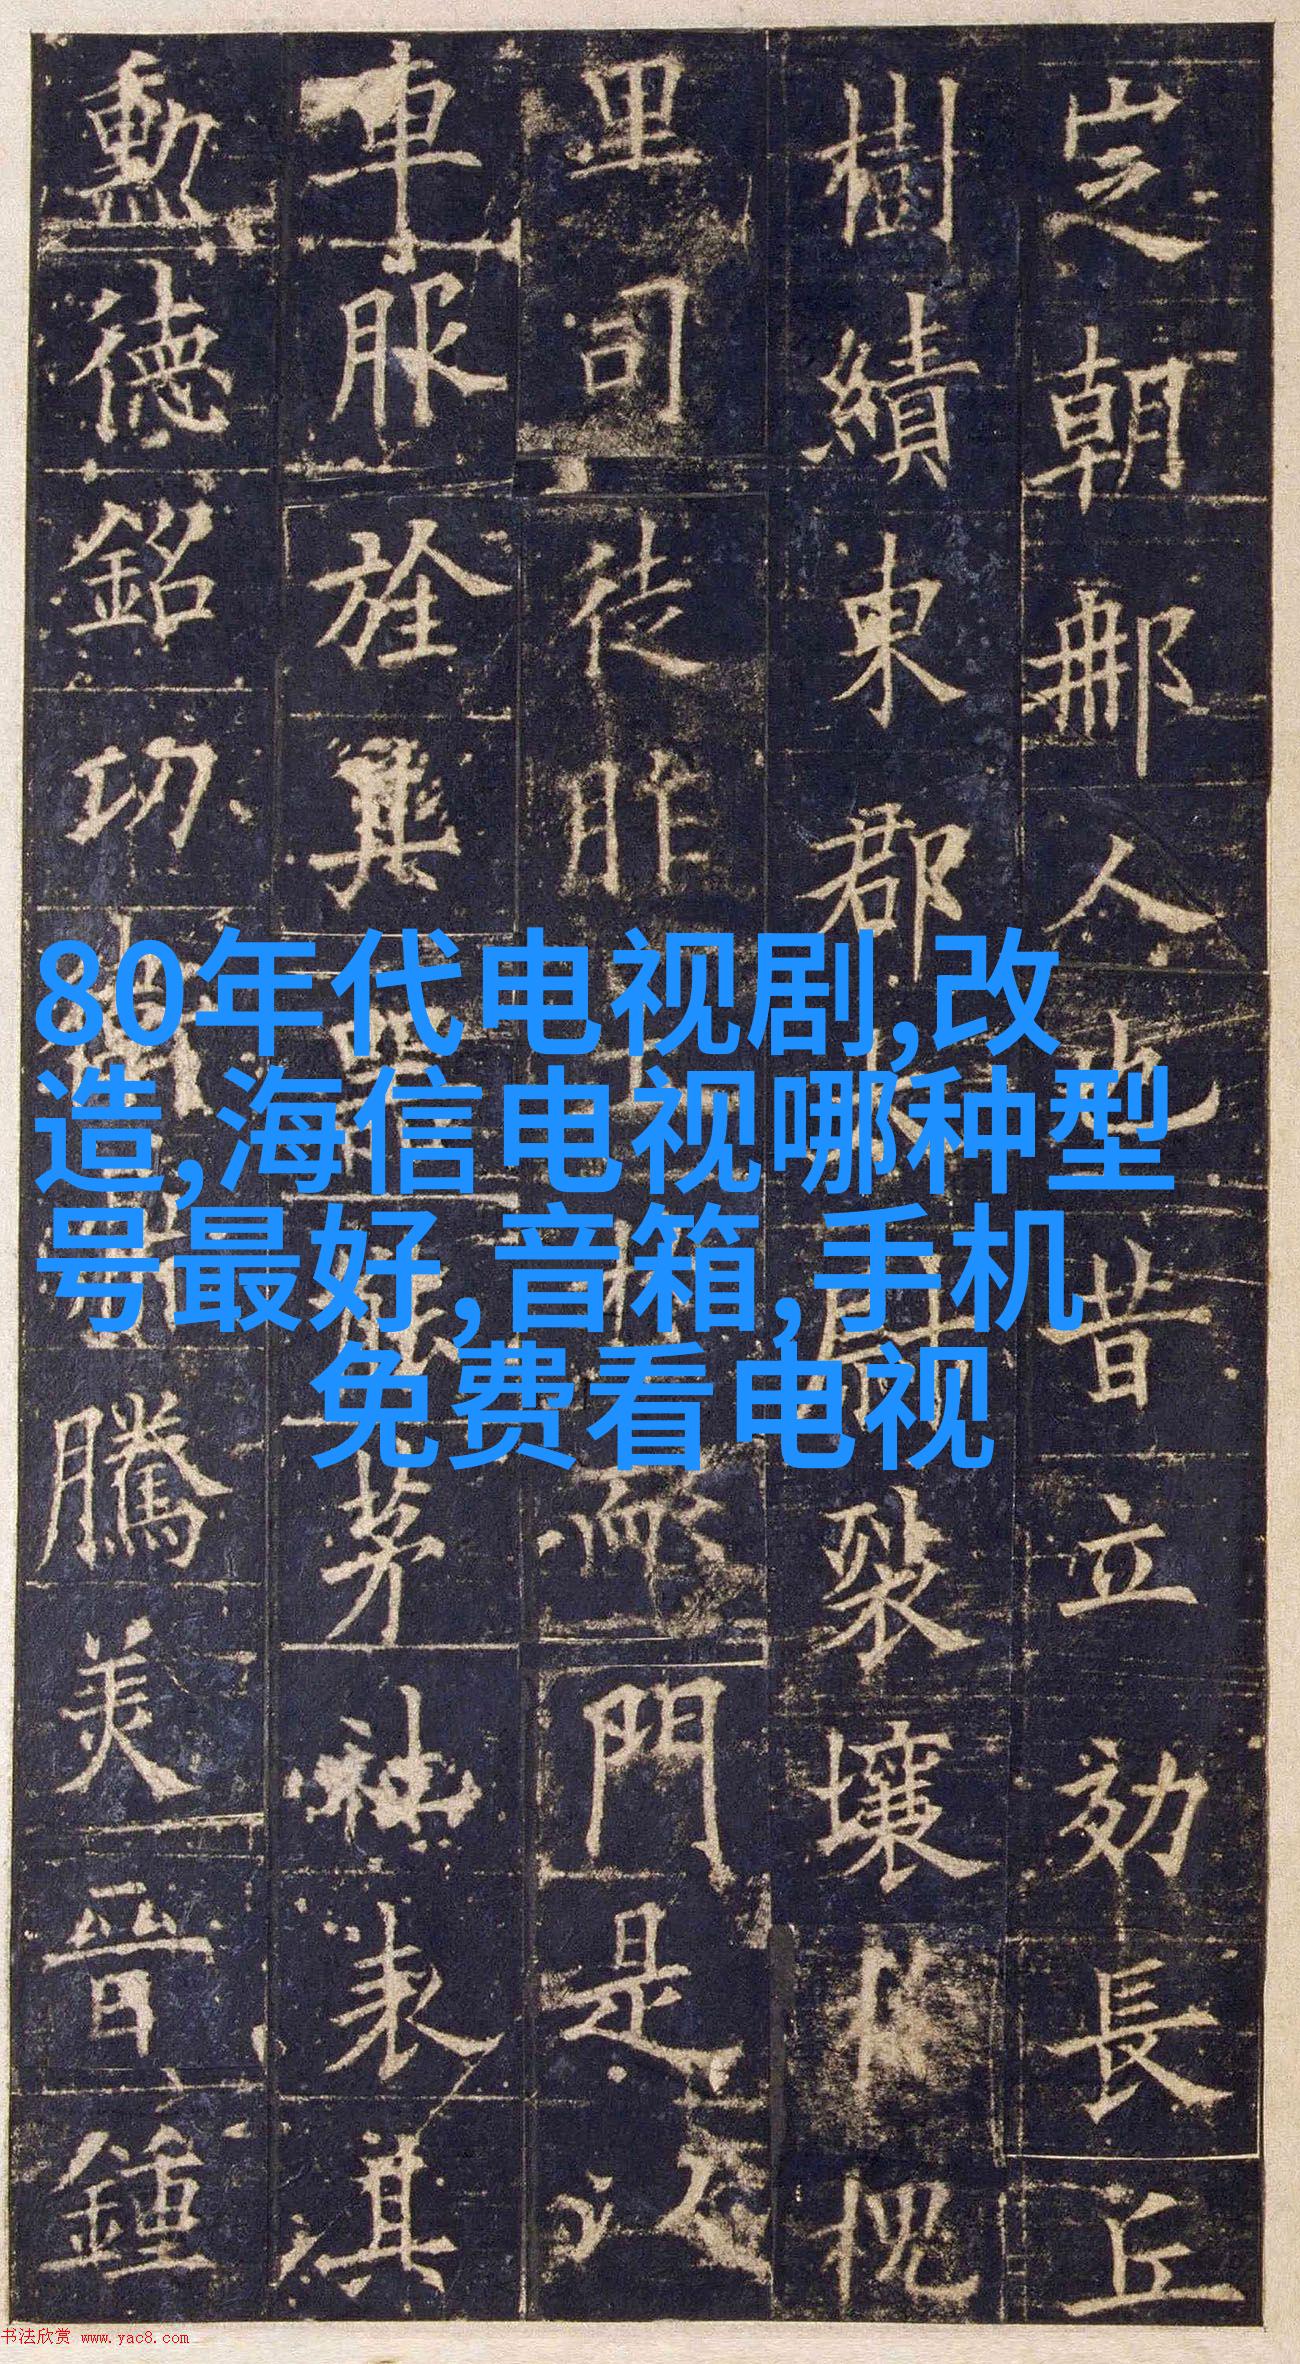 芝朝那人也昔立効長丘
樹績東郡太尉裂壤槐
里司徒胙而門是
車服旌其器茅社表淇
勳德銘功騰美晉鍾
80年代电视剧,改
造,海信电视哪种型
号最好,音箱,手机
免费看电视
书法欣赏 www.yac8.com